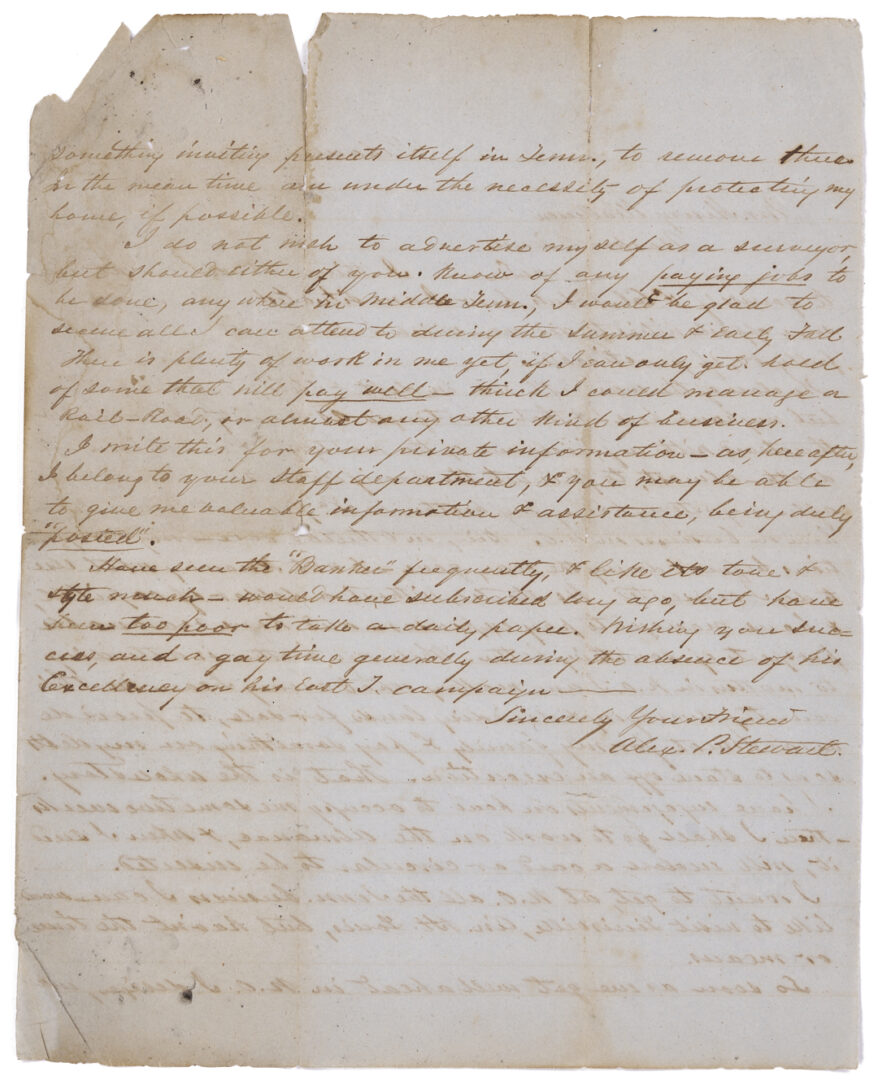 something inviting presents itself in Tenn., to remove there.
in the mean time am under the necessity of protecting my
home, if possible.
I do not wish to advertise myself as a surveyor,
but should either of you know of any paying jobs to
be done, any where in Middle Tenn., I would be glad to
secure all I can attend to during the Summer & early Fall
There is plenty of work in me yet, if I can only get hold
of some that will pay well — think I could manage a
Rail-Road, or almost any other kind of business.
I write this for your private information — as, hereafter,
I belong to your Staff department, & you may be able
to give me valuable information & assistance, being duly
"posted".
Have seen the "Banner" frequently, & like its tone &
style much — would have subscribed long ago, but have
been too poor to take a daily paper. Wishing you suc-
cess, and a gay time generally during the absence of his
Excellency on his East T. campaign —
Sincerely Your Friend
Alex. P. Stewart.